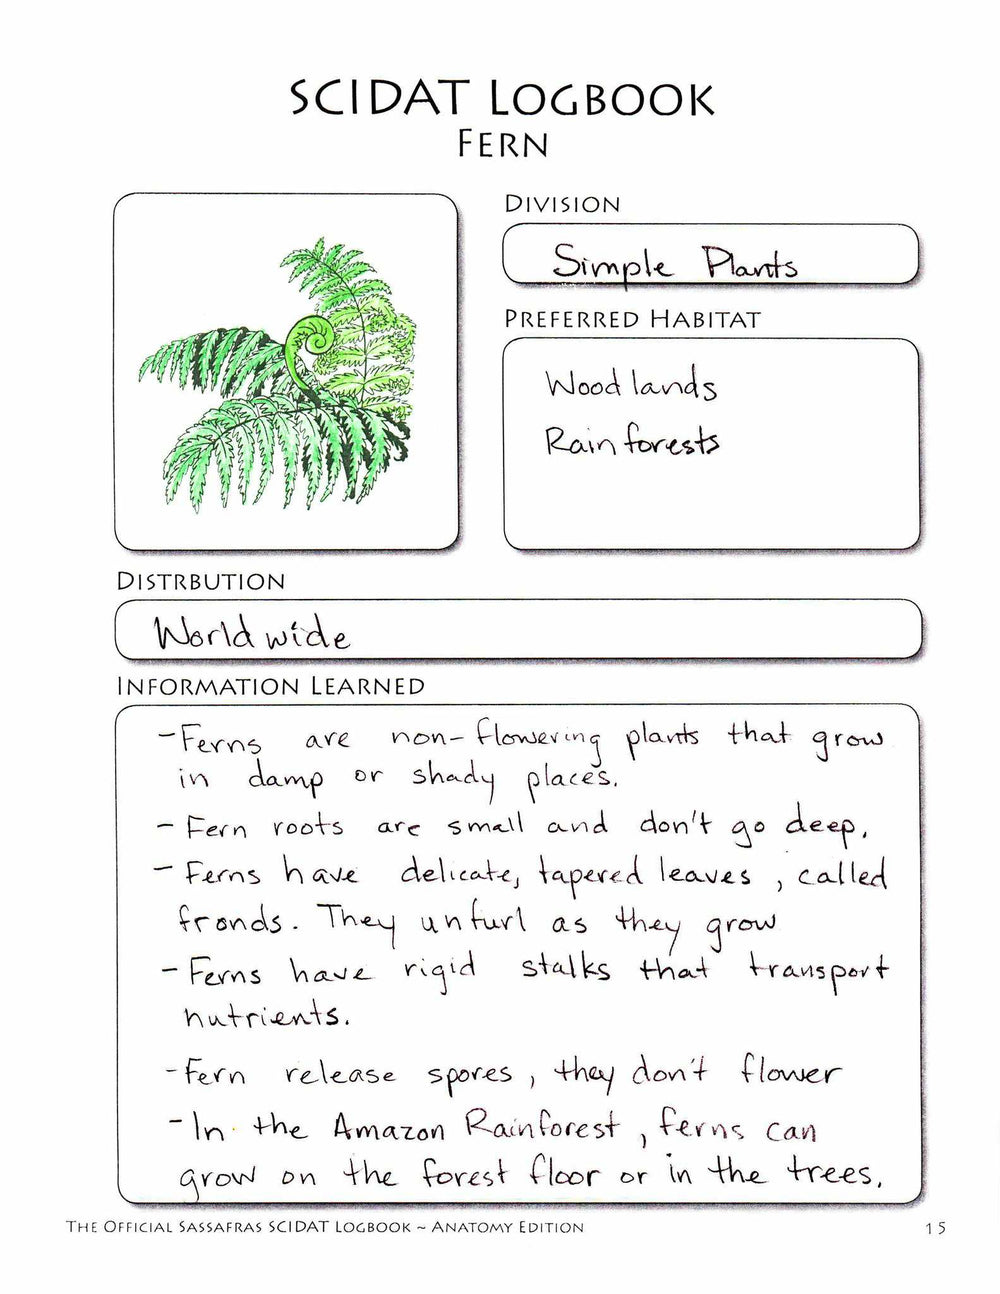 SCIDAT LOGBOOK
FERN
DIVISION
Simple Plants
PREFERRED HABITAT
Woodlands
Rainforests
DISTRBUTION
Worldwide
INFORMATION LEARNED
-Ferns are non-flowering plants that grow
in damp or shady places.
- Fern roots are small and don't go deep.
- Ferns have delicate, tapered leaves, called
fronds. They unfurl as they grow
- Ferns have rigid stalks that transport
nutrients.
-Fern release spores, they don't flower
-In the Amazon Rainforest, ferns can
grow on the forest floor or in the trees.
THE OFFICIAL SASSAFRAS SCIDAT LOGBOOK ~ ANATOMY EDITION 15